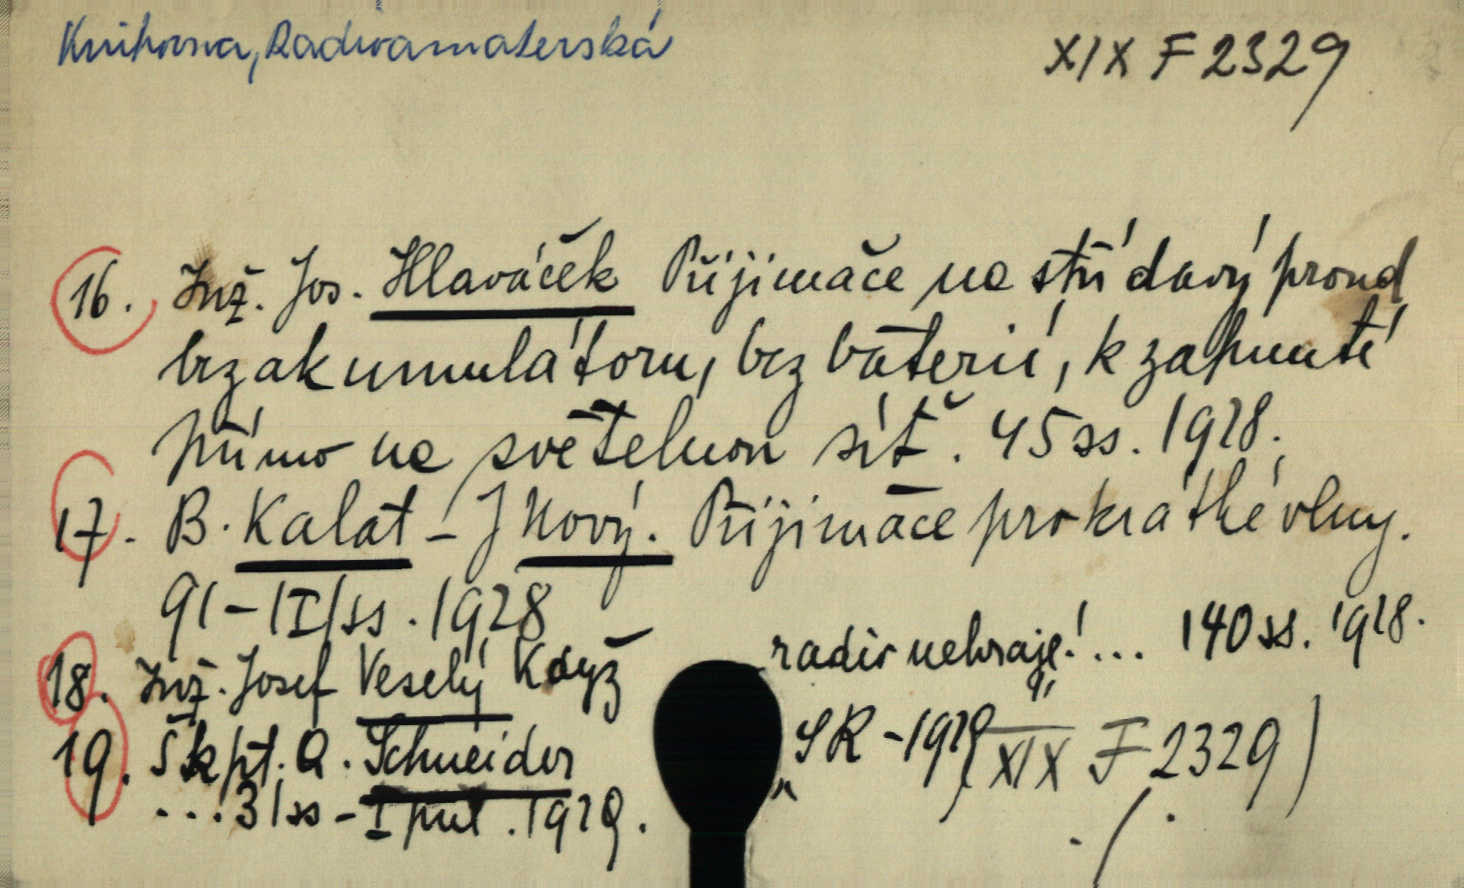 Knihovna, Radioamaterská
XIX F 2329
16. Inž. Jos. Hlaváček Přijimače na střídavý proud
bez akumulátoru, bez baterií, k zapnutí
přímo na světelnou síť. 45 ss. 1928.
17. B. Kalat - J Nový. Přijimače pro krátké vlny.
91 - III ss. 1928
18. Inž. Josef Veselý Když radio nehraje!... 140 ss. 1928.
19. Škpt. A. Schneider „SR - 1929" (XIX F 2329)
...31 ss - I příl. 1929. ./.